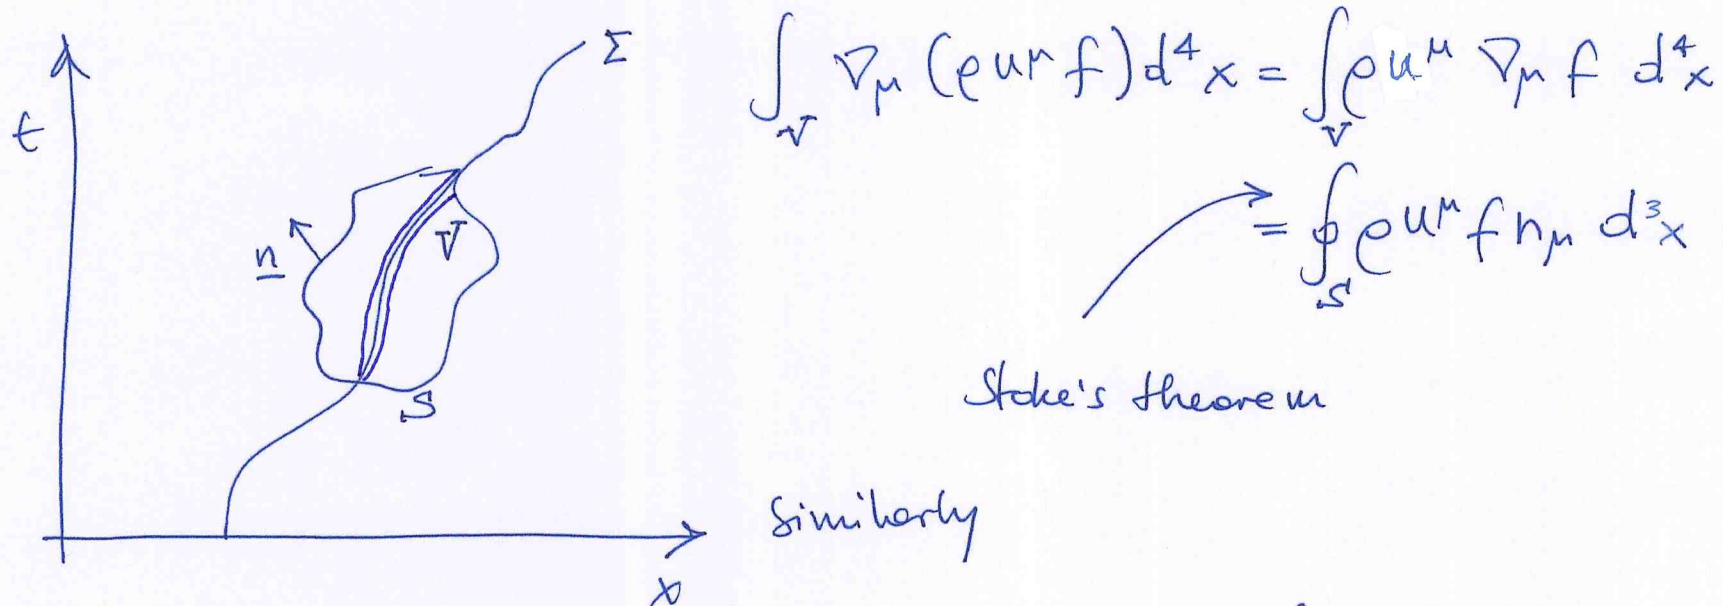 Σ
t
n
V
S
x
∫_V ∇_μ (ρ u^μ f) d⁴x = ∫_V ρ u^μ ∇_μ f d⁴x
= ∮_S ρ u^μ f n_μ d³x
Stoke's theorem
Similarly